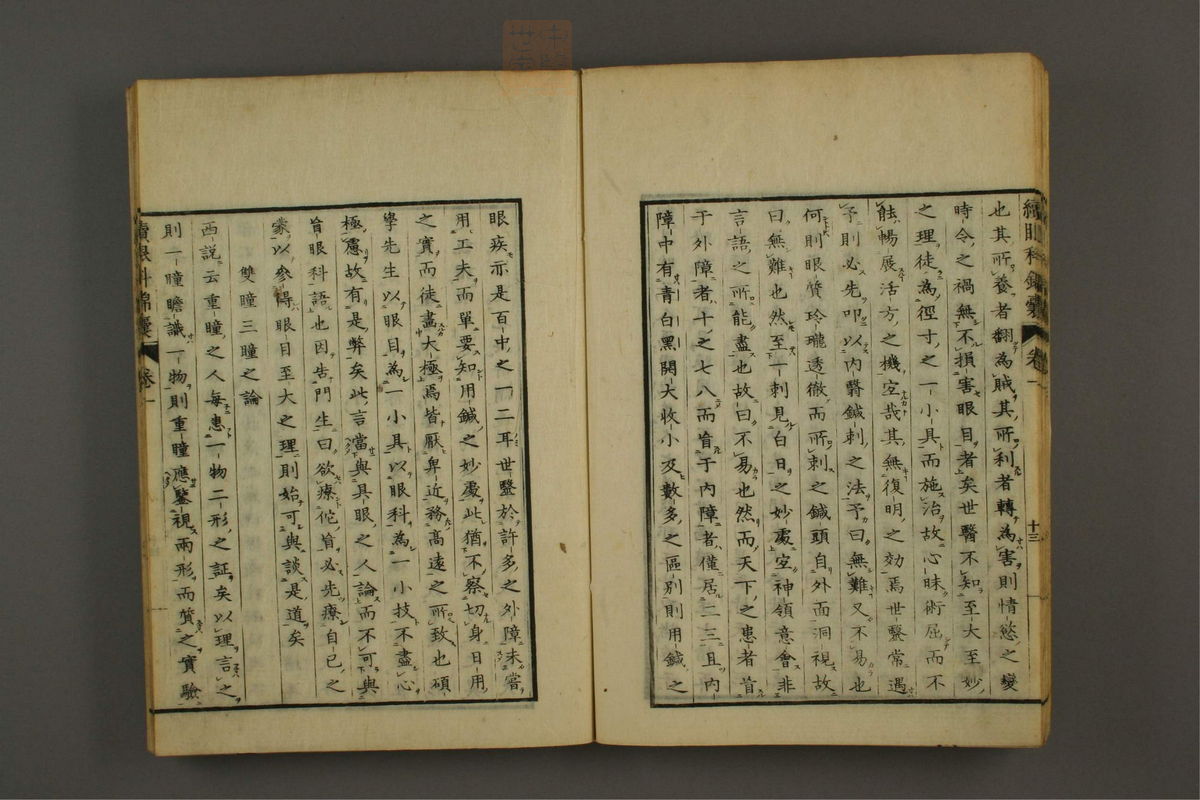 續眼科錦囊 卷一 十三
也其所養者翻為賊其所利者轉為害則情慾之變
時令之禍無不損害眼目者矣世醫不知至大至妙
之理徒為徑寸之一小具而施治故心昧術屈而不
能暢展活方之機宜哉其無復明之効焉世醫常遇
予則必先叩以內醫鍼刺之法予曰無難又不易也
何則眼質玲瓏透徹而所刺之鍼頭自外面洞視故
曰無難也然至一刺見白日之妙處宜神領意會非
言語之所能盡也故曰不易也然而天下之患者盲
于外障者十之七八而盲于內障者僅居二三且內
障中有青白黑開大收小及數多之區別則用鍼之
眼疾示是百中之一二耳世醫於許多之外障未嘗
用工夫而單要知用鍼之妙處此猶不察切身日用
之實而徒盡大極焉皆厭卑近務高遠之所致也碩
學先生以眼目為一小具以眼科為一小技不盡心
極慮故有是弊矣此言當與具眼之人論而不可與
盲眼科語也因告門生曰欲療佗盲必先療自己之
蒙以參得眼目至大之理則始可與談是道矣
雙瞳三瞳之論
西說云重瞳之人每患一物二形之証矣以理言之
則一瞳瞻識一物則重瞳應鑒視兩形而質之實驗
續眼科錦囊 卷一